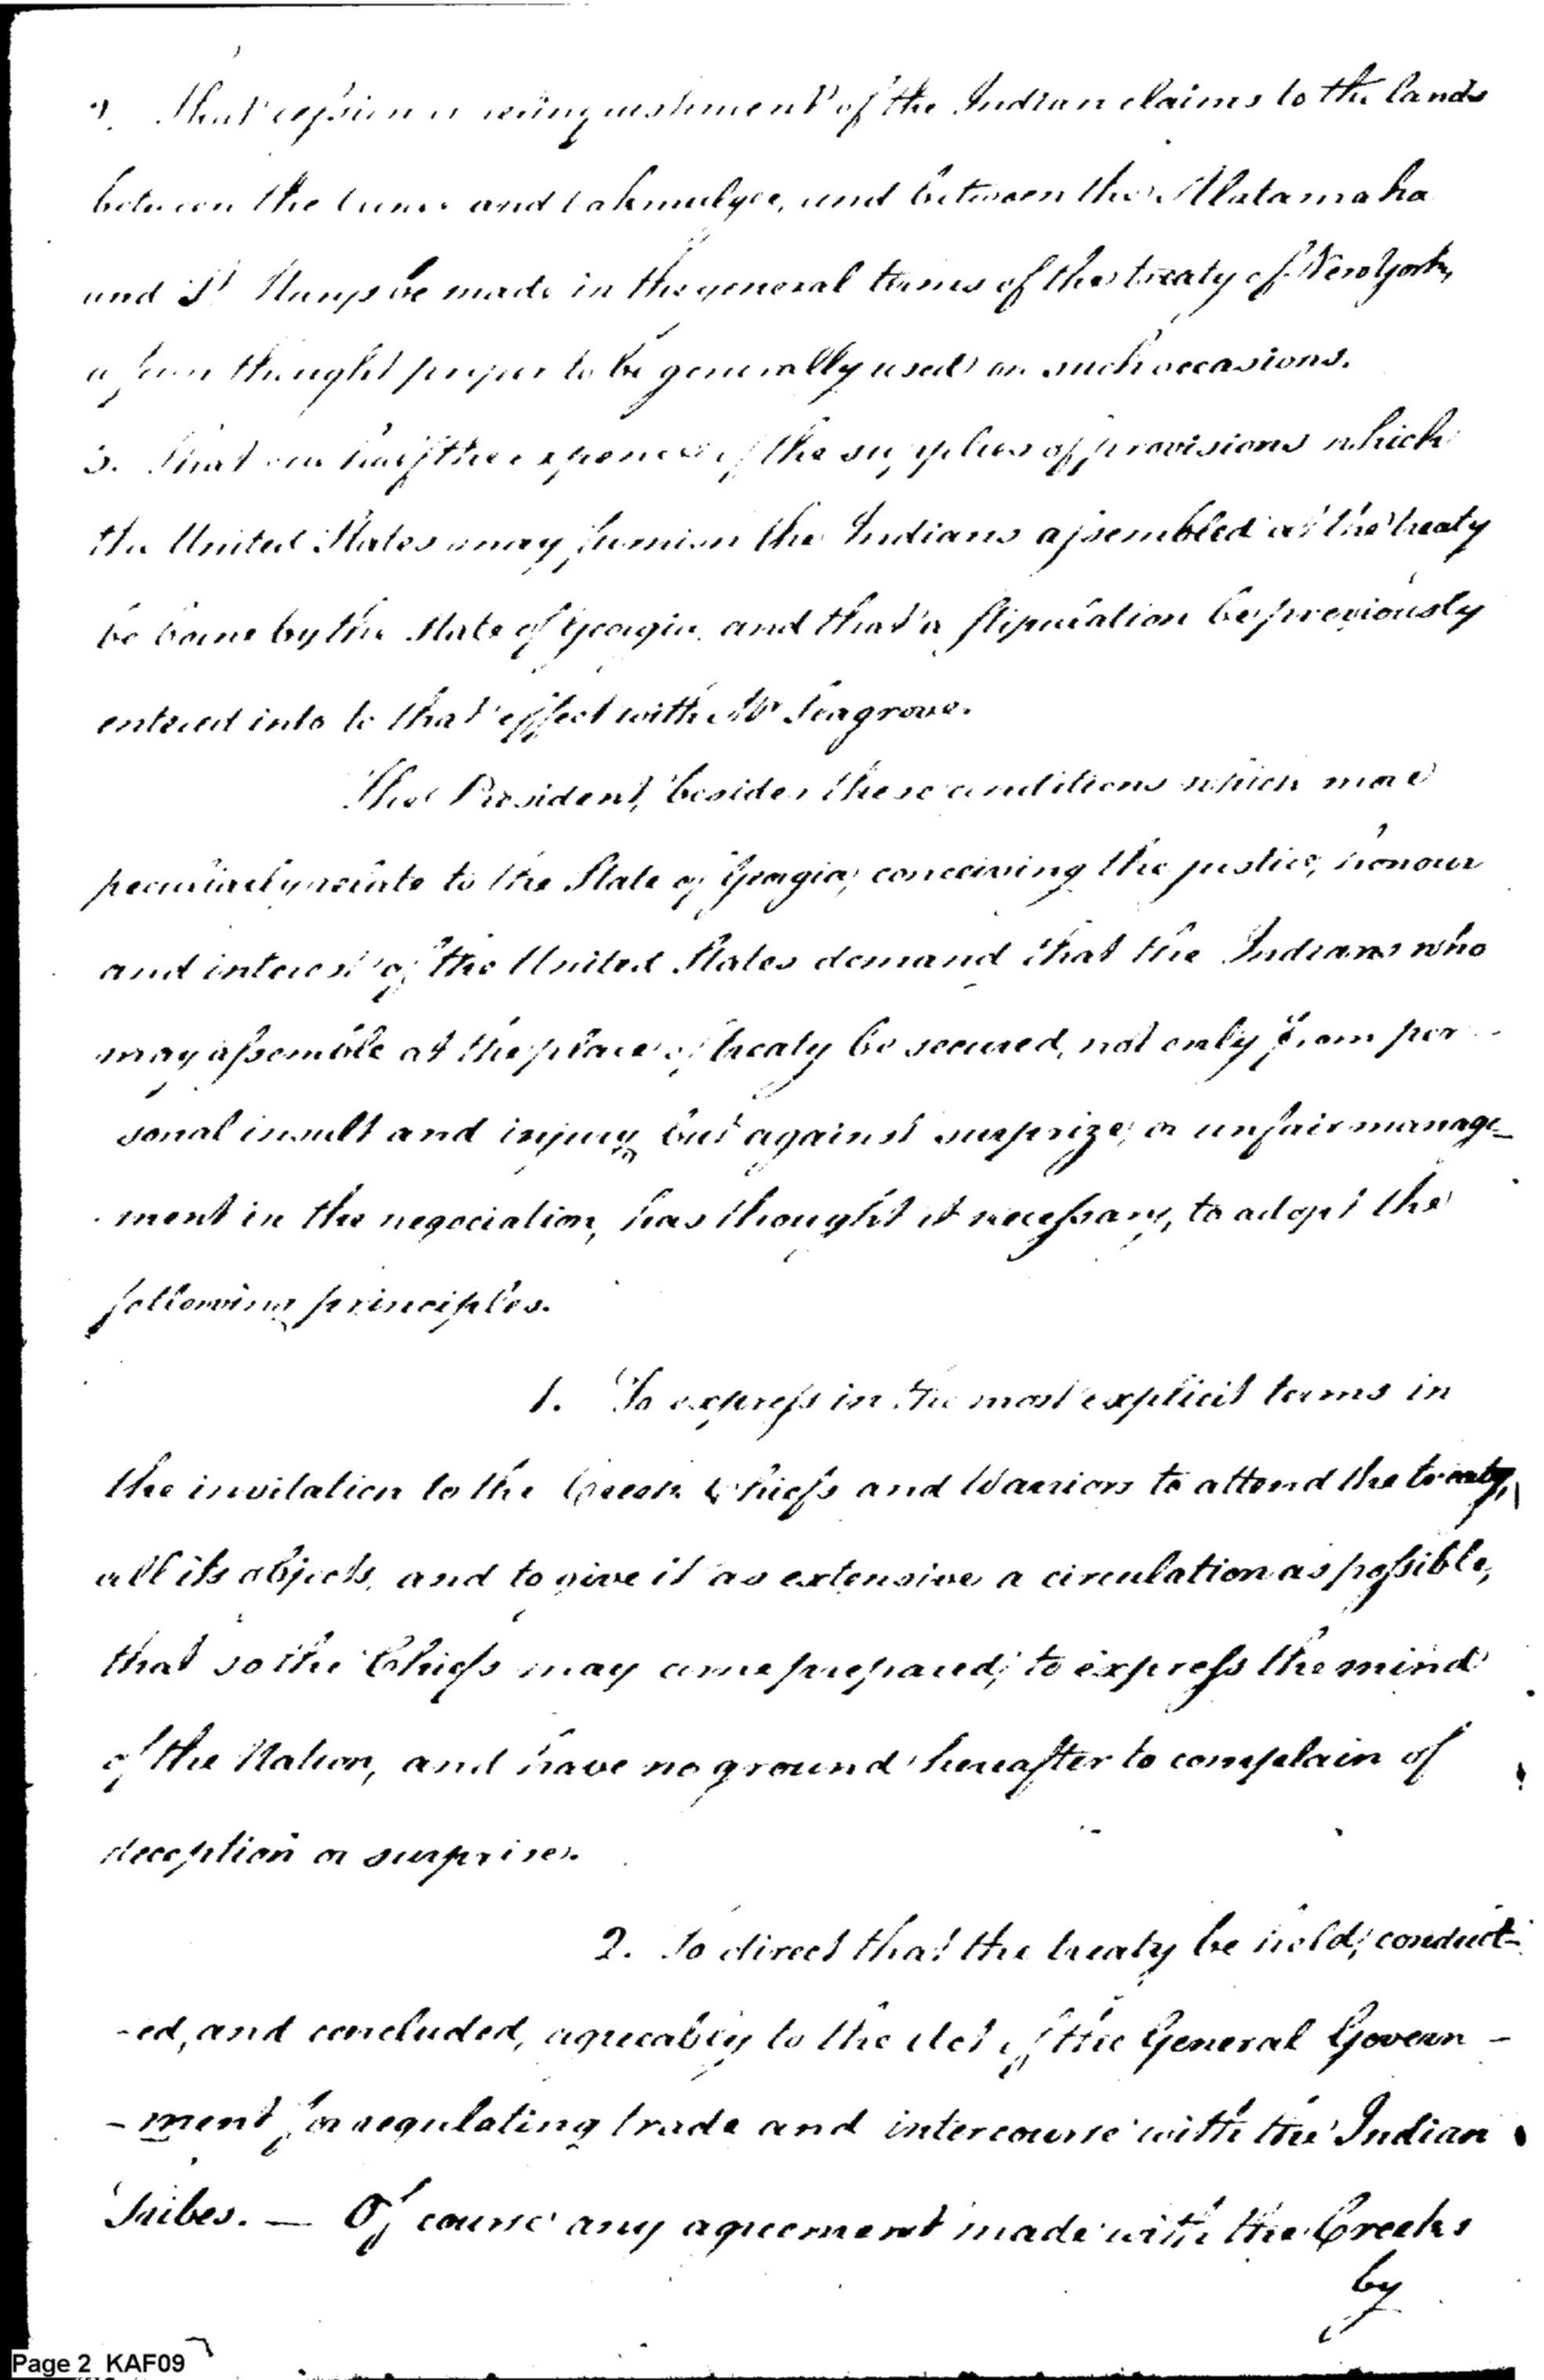 2. That cession or relinquishment of the Indian claims to the lands
between the Oconee and Oakmulgee, and between the Alatamaha
and St Marys be made in the general terms of the treaty of New York,
a form thought proper to be generally used on such occasions.
3. That one half the expences of the supplies of provisions which
the United States may furnish the Indians assembled at the treaty
be borne by the State of Georgia, and that a stipulation be previously
entered into to that effect with Mr Seagrove.
The President, besides these conditions which more
peculiarly relate to the State of Georgia, conceiving the justice, honour
and interest of the United States demand that the Indians who
may assemble at the place of treaty be secured, not only from per-
sonal insult and injury, but against surprize, or unfair manage-
ment in the negociation, has thought it necessary, to adopt the
following principles.
1. To express in the most explicit terms in
the invitation to the Creek Chiefs and Warriors to attend the treaty,
all its objects, and to give it as extensive a circulation as possible,
that so the Chiefs may come prepared, to express the mind
of the Nation, and have no ground hereafter to complain of
deception or surprise.
2. To direct that the treaty be held, conduct-
-ed, and concluded, agreeably to the Act of the General Govern-
-ment for regulating trade and intercourse with the Indian
Tribes. — Of course any agreement made with the Creeks
by
Page 2 KAF09